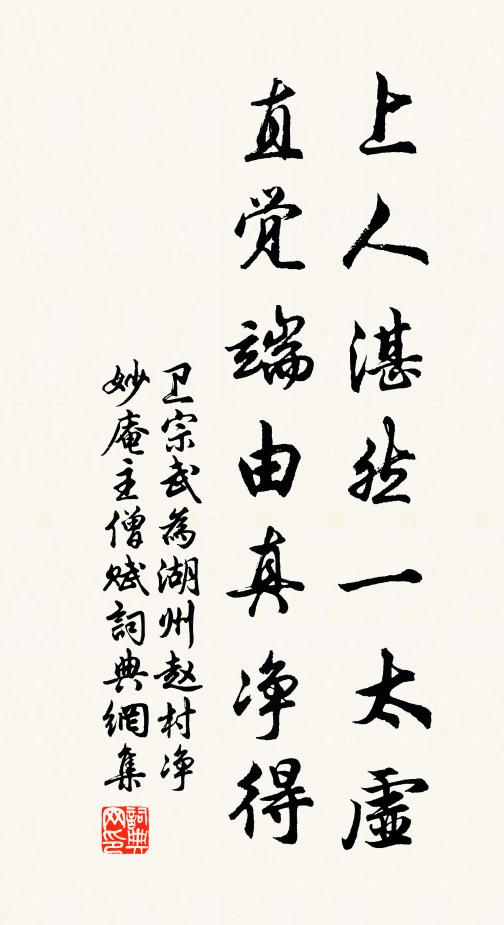 上人湛然一太虛
直覚端由真净得
卫宗武為湖州赵村净
妙庵主僧赋詞典網集
詞典网印